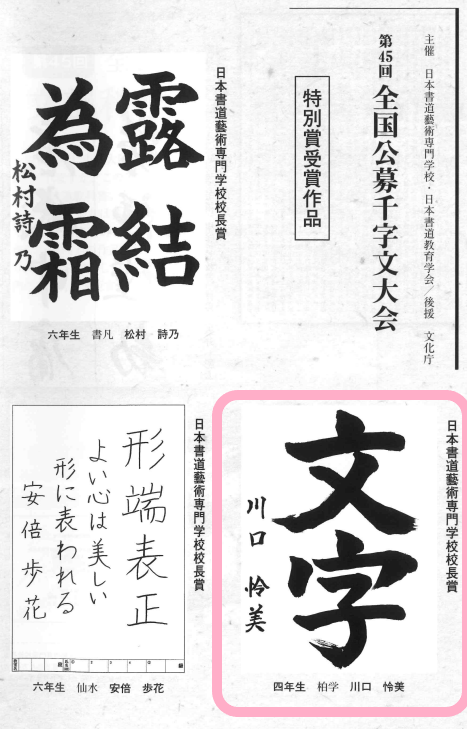 主催 日本書道藝術専門学校・日本書道教育学会/後援 文化庁
第45回 全国公募千字文大会
特別賞受賞作品
日本書道藝術専門学校校長賞
露結
為霜
松村詩乃
六年生 書凡 松村 詩乃
日本書道藝術専門学校校長賞
文字
川口怜美
四年生 柏学 川口 怜美
日本書道藝術専門学校校長賞
形端表正
よい心は美しい
形に表われる
安倍歩花
六年生 仙水 安倍 歩花